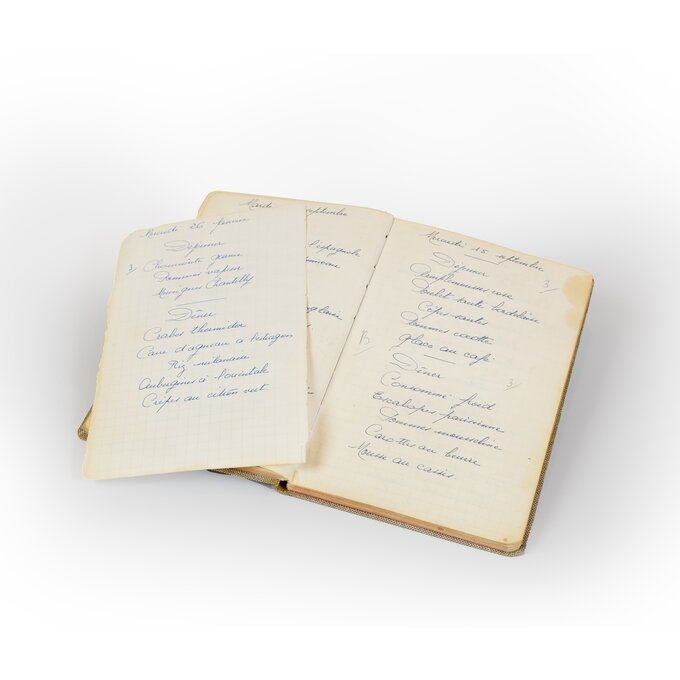 Mercredi 26 janvier
Déjeuner
3/
Choucroute garnie
Pommes vapeur
Meringues Chantilly
Dîner
Crabes thermidor
Carré d'agneau à l'estragon
Riz milanaise
Aubergines à l'orientale
Crêpes au citron vert
Mardi septembre
l'espagnole
Mercredi 15 septembre
Déjeuner
3/
Pamplemousses rose
Poulet sauté bordelaise
Cèpes sautés
Pommes cocotte
glace au café
B/
Dîner
3/
Consommé froid
Escalopes parisienne
Pommes mousseline
Carottes au beurre
Mousse au cassis.